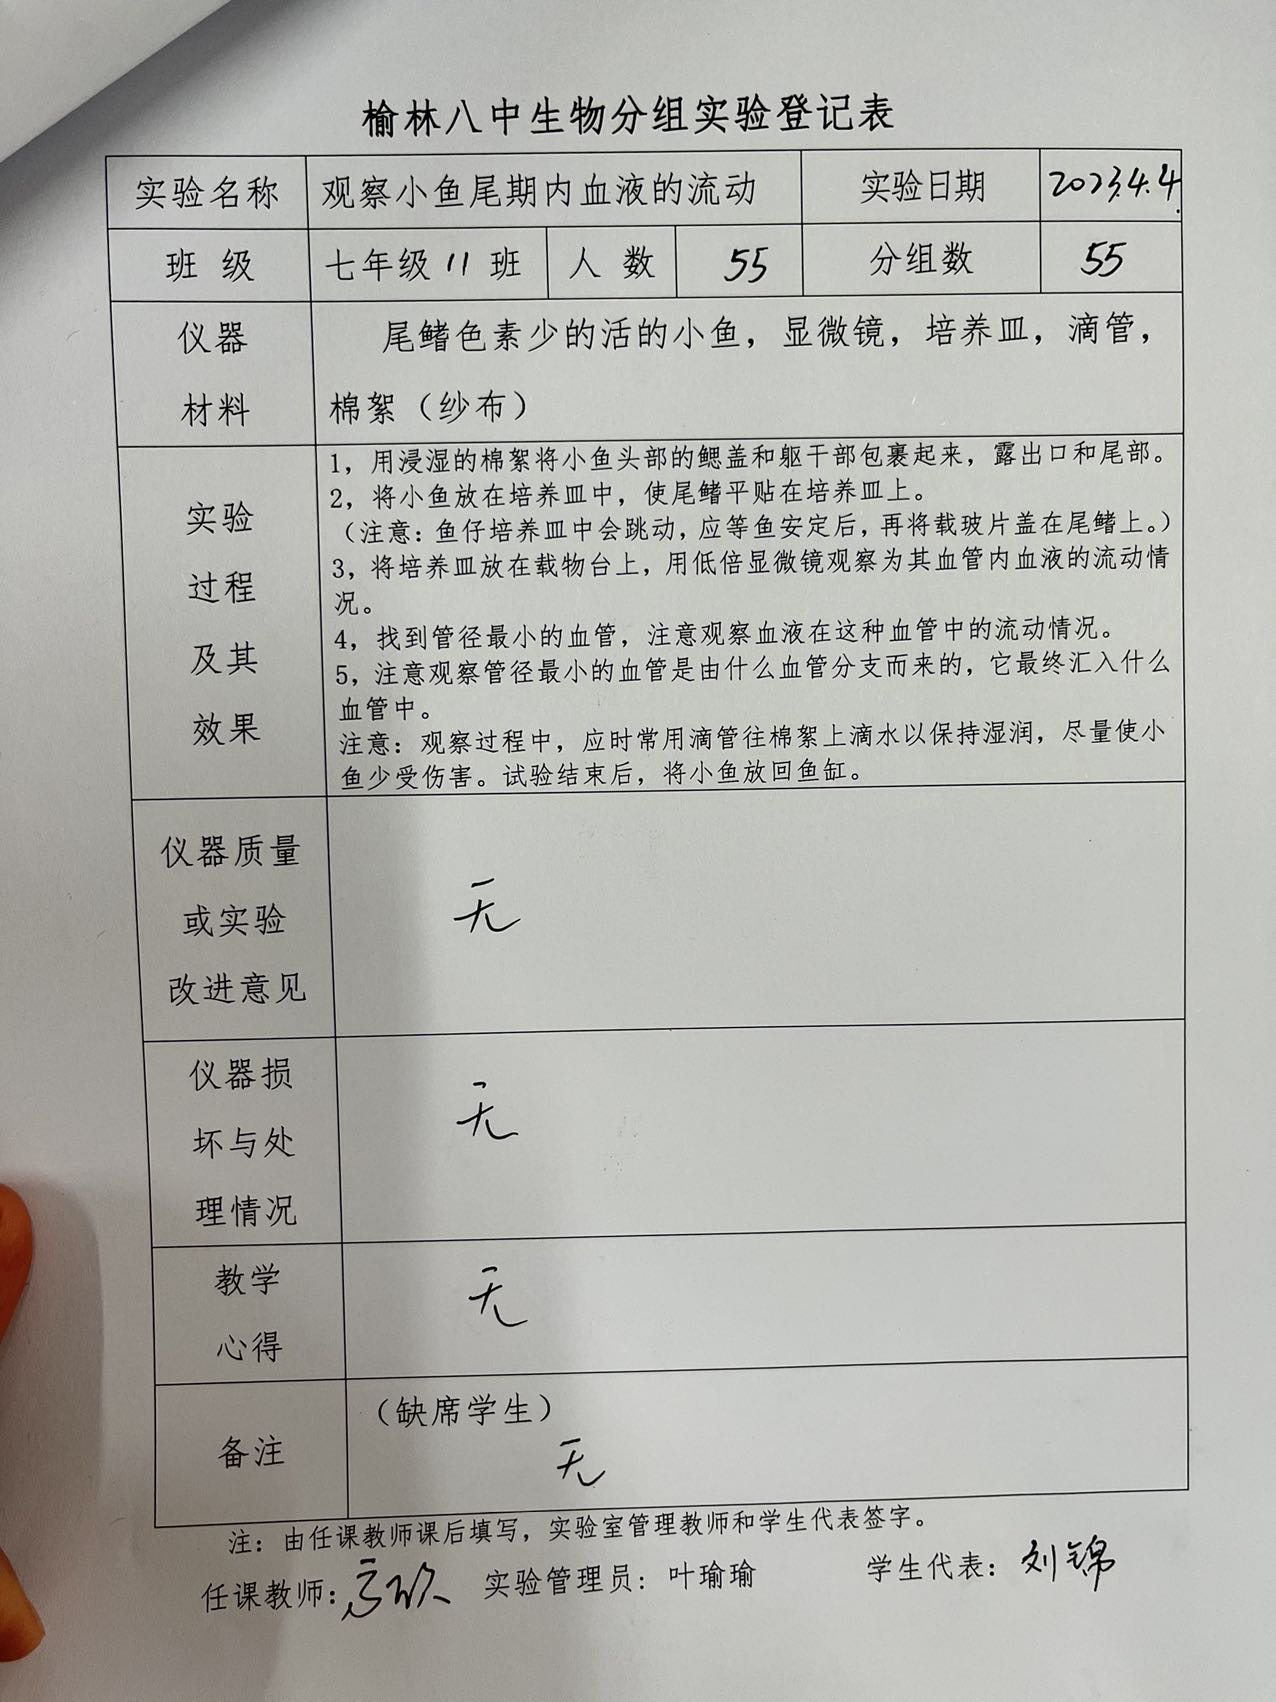 榆林八中生物分组实验登记表
实验名称 观察小鱼尾期内血液的流动 实验日期 2023.4.4.
班 级 七年级 11 班 人 数 55 分组数 55
仪器
材料
尾鳍色素少的活的小鱼，显微镜，培养皿，滴管，
棉絮（纱布）
实验
过程
及其
效果
1，用浸湿的棉絮将小鱼头部的鳃盖和躯干部包裹起来，露出口和尾部。
2，将小鱼放在培养皿中，使尾鳍平贴在培养皿上。
（注意：鱼仔培养皿中会跳动，应等鱼安定后，再将载玻片盖在尾鳍上。）
3，将培养皿放在载物台上，用低倍显微镜观察为其血管内血液的流动情
况。
4，找到管径最小的血管，注意观察血液在这种血管中的流动情况。
5，注意观察管径最小的血管是由什么血管分支而来的，它最终汇入什么
血管中。
注意：观察过程中，应时常用滴管往棉絮上滴水以保持湿润，尽量使小
鱼少受伤害。试验结束后，将小鱼放回鱼缸。
仪器质量
或实验
改进意见
无
仪器损
坏与处
理情况
无
教学
心得
无
备注
（缺席学生）
无
注：由任课教师课后填写，实验室管理教师和学生代表签字。
任课教师： 实验管理员：叶瑜瑜 学生代表：刘锦